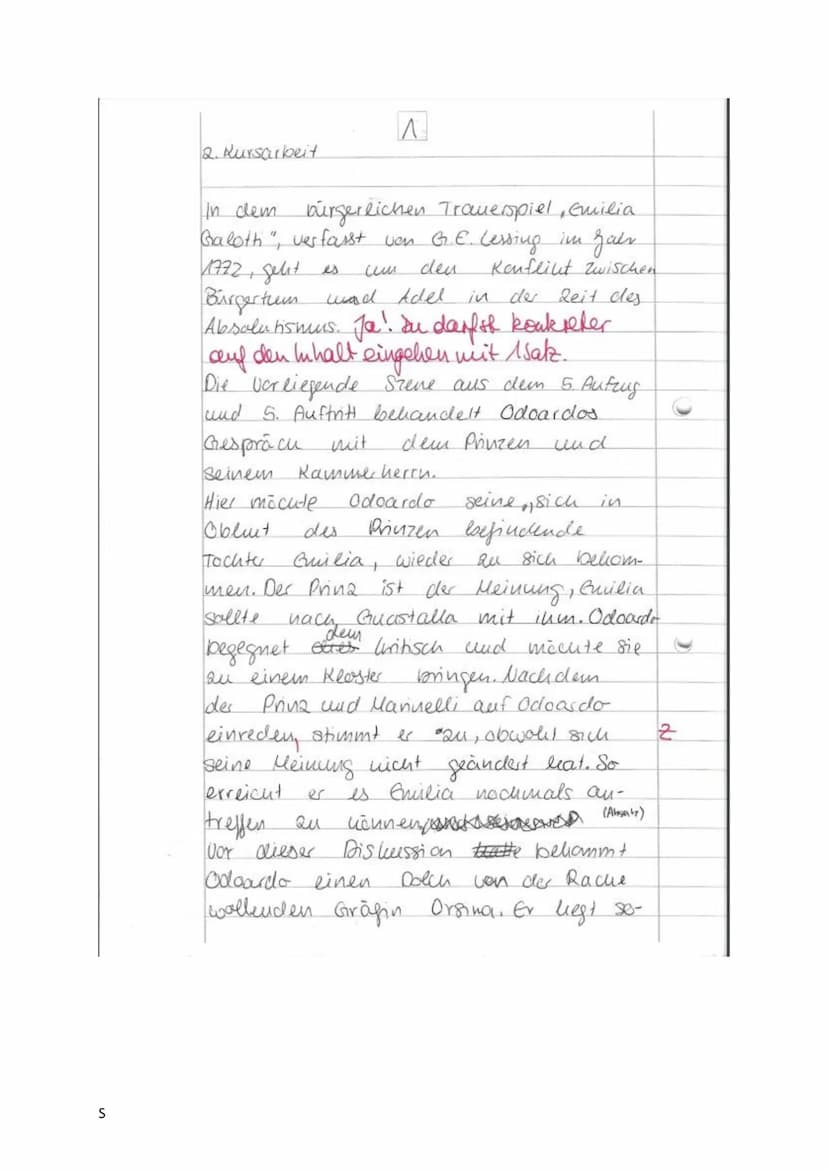 1.
2. Kursarbeit
In dem bürgerlichen Trauerspiel „Emilia
Galotti“, verfasst von G.E. Lessing im Jahr
1772, geht es um den Konflikt zwischen
Bürgertum und Adel in der Zeit des
Absolutismus. Ja! Du darfst konkreter
auf den Inhalt eingehen mit 1 Satz.
Die vorliegende Szene aus dem 5. Aufzug
und 5. Auftritt behandelt Odoardos
Gespräch mit dem Prinzen und
seinem Kammerherrn.
Hier möchte Odoardo seine, sich in
Obhut des Prinzen befindende
Tochter Emilia, wieder zu sich bekom-
men. Der Prinz ist der Meinung, Emilia
sollte nach Guastalla mit ihm. Odoardo
begegnet dem kritisch und möchte sie
zu einem Kloster bringen. Nachdem
der Prinz und Marinelli auf Odoardo
einreden, stimmt er zu, obwohl sich Z
seine Meinung nicht geändert hat. So
erreicht er es Emilia nochmals an-
treffen zu können (Absatz)
Vor dieser Diskussion bekommt
Odoardo einen Dolch von der Rache
wollenden Gräfin Orsina. Er liegt so-
S